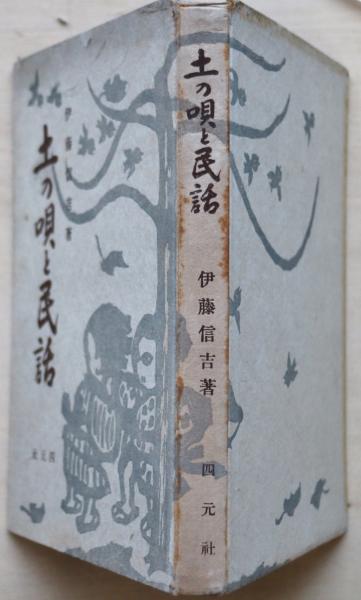 土の唄と民話
伊藤信吉著
四元社
伊藤信吉著
土の唄と民話
四元社